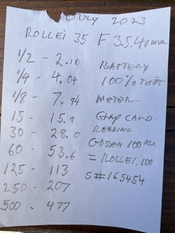 July 2023
ROLLEI 35 F 3.5 40mm
1/2 - 2.10 BATTERY
1/4 - 4.04 100% TEST
1/8 - 7.94 METER
15 - 15.9 GRAY CARD
30 - 28.0 READING
60 - 53.6 GOSSEN 100 ASA
125 - 113 = ROLLEI 100
250 - 207 S# 165454
500 - 477